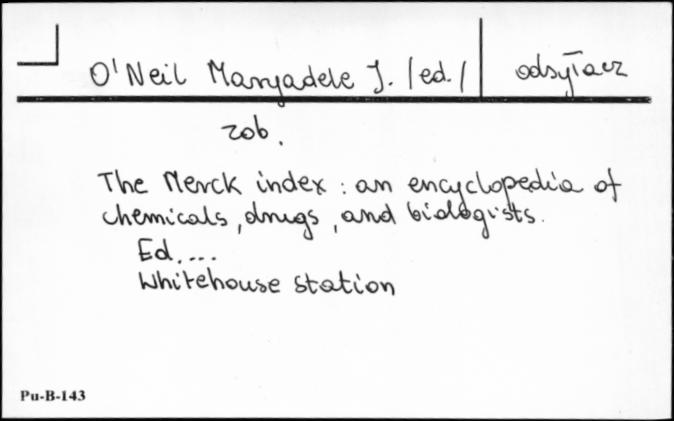 O'Neil Maryadele J. /ed./ odsyłacz
zob.
The Merck index : an encyclopedia of
chemicals, drugs, and biologists.
Ed. ...
Whitehouse station
Pu-B-143